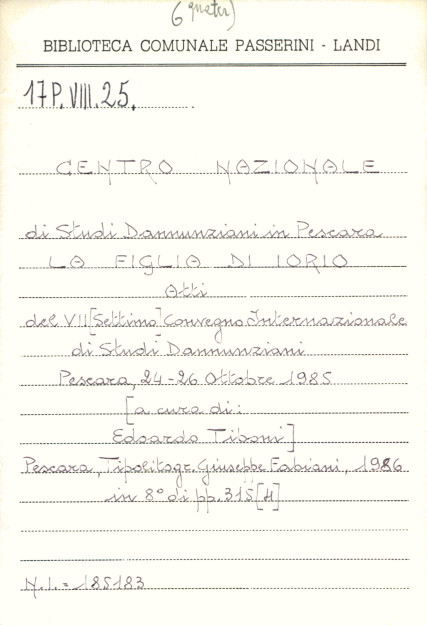 (6 quater)
BIBLIOTECA COMUNALE PASSERINI - LANDI
17P.VIII.25.
CENTRO NAZIONALE
di Studi Dannunziani in Pescara
LA FIGLIA DI IORIO
Atti
del VII [Settimo] Convegno Internazionale
di Studi Dannunziani
Pescara, 24-26 Ottobre 1985
[a cura di:
Edoardo Tiboni]
Pescara, Tipolitogr. Giuseppe Fabiani, 1986
in 8° di pp. 315 [4]
N.I. = 185183